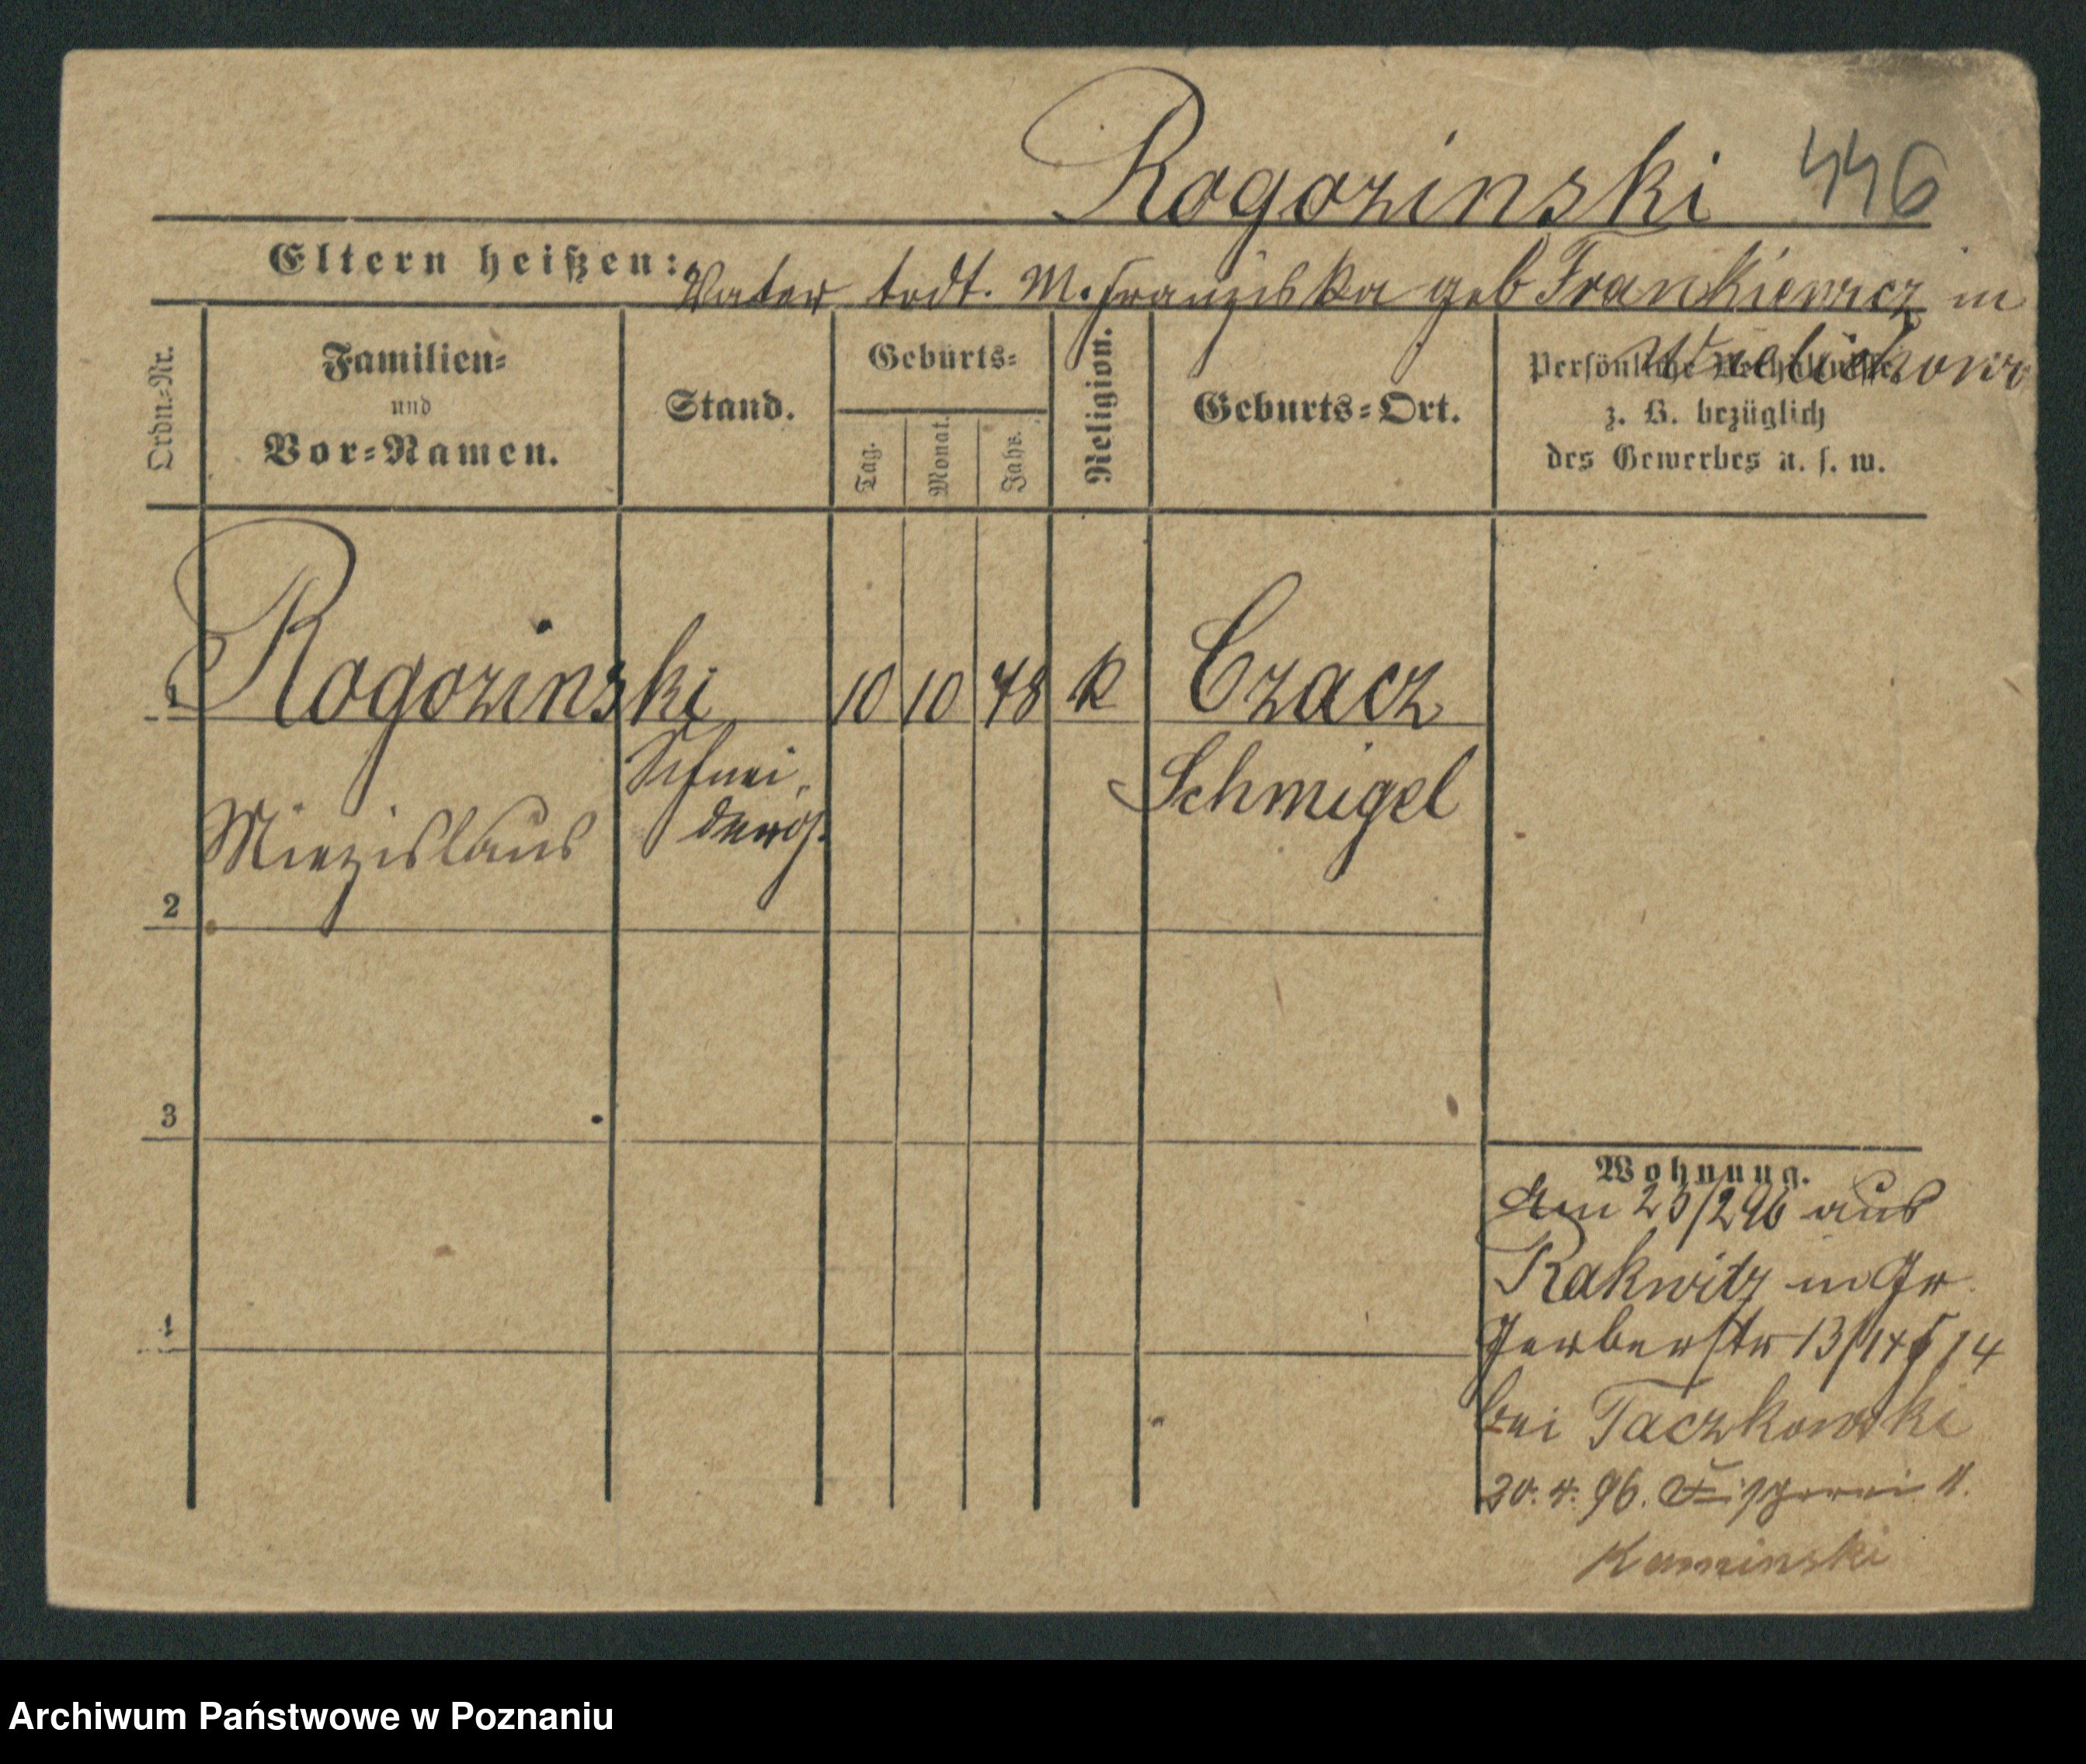 Rogozinski 446
Eltern heißen: Vater todt. M. Franziska geb Frankiewicz in
Ordn.-Nr.
Familien-
und
Vor-Namen.
Stand.
Geburts-
Tag.
Monat.
Jahr.
Religion.
Geburts-Ort.
Persönliche Verhältnisse
z. B. bezüglich
des Gewerbes u. s. w.
1 Rogozinski 10 10 78 k Czacz
Schnei-
derg. Schmigel
Miezislaus
2
3
4
Wohnung.
Am 25/2 96 aus
Rakwitz in Gr.
Gerberstr 13/14 14
bei Taczkowski
30. 4. 96. Fischerei
Kaminski
Archiwum Państwowe w Poznaniu